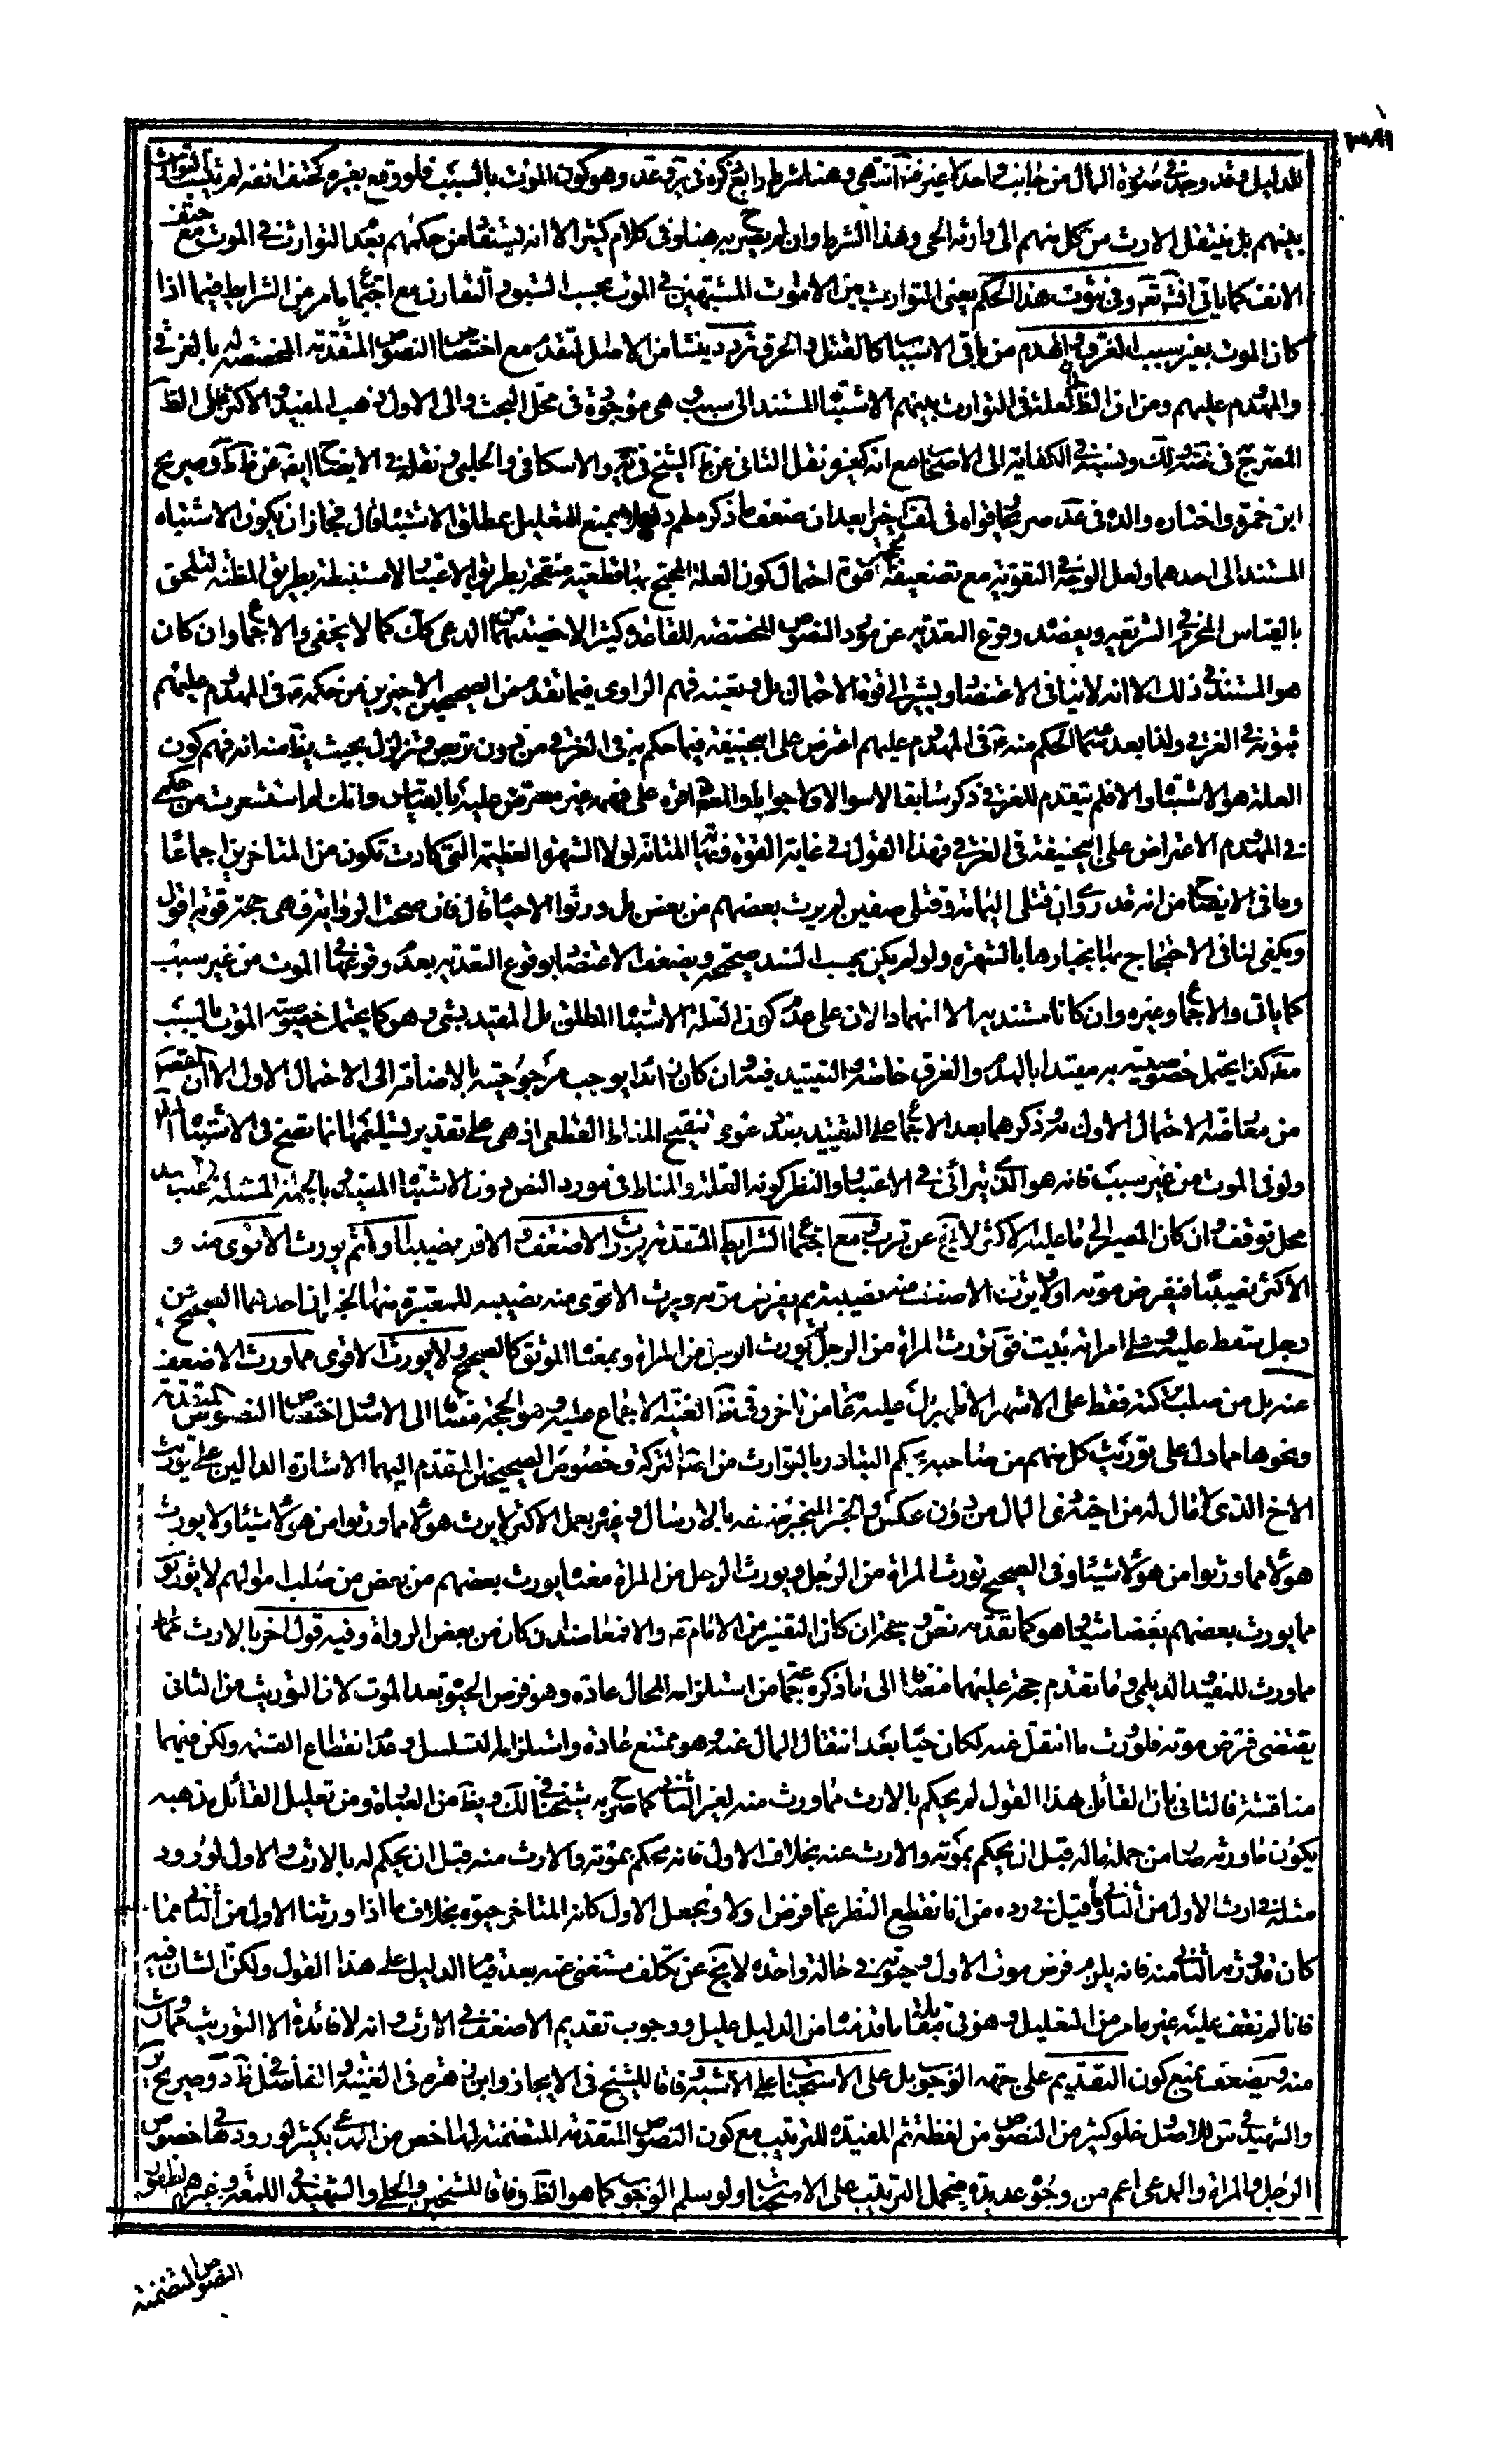 للدليل وقد وجد في صورة المال من جانب واحد كما عن غيره انتهى وهنا شرط رابع ذكره في ير وعد وهو كون الموت بالسبب فلو وقع بغيره كحتف انفه لم يثبت التوارث
بينهم بل ينتقل الارث من كل منهم الى وارثه الحي وهذا الشرط وان لم يصرح به هنا وفى كلام كثير الا انه يستفاد من حكمهم بعد التوارث في الموت مع حتف
الانف كما ياتى انشء تعه وفي ثبوت هذا الحكم يعنى التوارث بين الاموات المشتبهين في الموت بحسب السبق والتقارن مع اجتماع ما مر من الشرايط فيما اذا
كان الموت بغير سبب الغرق والهدم من باقى الاسباب كالقتل والحرق تردد ينشا من الاصل المتقدم مع اختصاص النصوص المتقدمة المخصصة له بالغرقى
والمهدوم عليهم ومن ان الظ ان العلة فى التوارث بينهم الاشتباه المستند الى سبب وهى موجودة فى محل البحث والى الاول ذهب المفيد والاكثر على الظ
المصرح فى ولك ونسبه في الكفاية الى الاصحاب مع انه كغيره نقل الثانى عن ظ الشيخ فى ية والاسكافى والحلبى ونقله في الايضاح ايضا عن ظ ط وصريح
ابن حمزة واختاره والده فى عد صريحا وقواه فى لف اخيرا بعد ان ضعف ما ذكر بمنع التعليل بمطلق الاشتباه قال فجاز ان يكون الاشتباه
المستند الى احدهما ولعل الوجه في التقوية مع تضعيفه قوة احتمال كون العلة المحتج بها قطعية منقحة بطريق الاعتبار لا مستنبطة بطريق المظنة لتلحق
بالقياس المحرم في الشريعة ويعضده وقوع التعدية عن مورد النصوص المختصة الى كثير من المدعى كك كما لا يخفى والاجماع وان كان
هو المستند في ذلك الا انه لا ينافى الاعتضاد ويشير الى قوة الاحتمال بل وتعينه فهم الراوى فيما تقدم من الصحيحين الاخيرين من حكمه ع فى المهدوم عليهم
ثبوته في الغرقى ولذا بعد سماع الحكم منه ع فى المهدوم عليهم اعترض على ابي حنيفة فيما حكم به فى الغرقى من دون تربص وتزلزل بحيث يظ منه انه فهم كون
العلة هو الاشتباه والا فلم يتقدم للغرقى ذكر سابقا لا سوالا ولا جوابا والمعصوم ع اقره على فهمه غير معترض عليه بالقياس وانك لم استشعرت من حكمى
في المهدوم الاعتراض على ابي حنيفة فى الغرقى فهذا القول في غاية القوة والمتانة لولا الشهرة العظيمة التى كادت تكون من المتاخرين اجماعا
وما فى الايضاح من انه قد روى ان قتلى اليمامة وقتلى صفين لم يرث بعضهم من بعض بل ورثوا الاحياء قال فان صحت الرواية فهى حجة قوية اقول
ويكفى لنا فى الاحتجاج بها انجبارها بالشهرة ولو لم يكن بحسب السند صحيحة ويضعف الاعتضاد بوقوع التعدية بعد وقوعها في الموت من غير سبب
كما ياتى والاجماع وغيره وان كانا مستند به الا انهما دالان على عدم كون العلة الاشتباه المطلق بل المقيد بشىء وهو كما يحتمل خصوصية الموت بالسبب
معه كذا يحتمل خصوصيته به مقيدا بالهدم والغرق خاصة والتقييد فيه وان كان زائدا يوجب مرجوحيته بالاضافة الى الاحتمال الاول الا ان القصد
من معاضة الاحتمال الاول وذكرهما بعد الاجماع على التقييد بند عوى تنقيح المناط القطعى اذ هى على تقدير تسليمها انما تصح فى الاشتباه
ولو فى الموت من غير سبب فانه هو الذى يترائى في الاعتبار والنظر كونه العلة والمناط فى مورد النص دون الاشتباه المقيد وبالجملة المسئلة
محل توقف وان كان المصير الى ما عليه الاكثر لا يخ عن قرب ومع اجتماع الشرايط المتقدمة يورث الاضعف والاقل نصيبا اولا ثم يورث الاقوى منه و
الاكثر نصيبا فيفرض موته اولا ويرث الاضعف منه نصيبه ثم يفرض موته ويرث الاقوى منه نصيبه للمعتبرة منها الخبران احدهما الصحيح عن
رجل سقط عليه وعلى امرانه بيت فق تورث المراة من الرجل ثم يورث الرجل من المراة وبمعناه الموثق كالصحيح ولا يورث الاقوى مما ورث الاضعف
عنه بل من صلب تركته فقط على الاشهر الاظهر بل عليه عامة من تاخر وفى ظ الغنية الاجماع عليه وهو الحجة مضافا الى الاصل واختصاص النصوص المتقدمة
ونحوها مما دل على توريث كل منهم من صاحبه بحكم التبادر بالتوارث من اعتد التركة وخصوص الصحيحين المتقدم اليهما الاشارة الدالين على توريث
الاخ الذى لا مال له من اخيه ذى المال من دون عكس والخبر المنجبر ضعفه بالارسال وغيره بعمل الاكثر لا يرث هؤلاء مما ورثوا من هؤلاء شيئا ولا يورث
هؤلاء مما ورثوا من هؤلاء شيئا وفى الصحيح تورث المراة من الرجل ويورث الرجل من المراة معناه يورث بعضهم من بعض من صلب اموالهم لا يورثون
مما يورث بعضهم بعضا شيئا وهو كما تقدمه نص وحجة ان كان التفسير من الامام ع والاعتضاد ان كان من بعض الرواة وفيه قول اخر بالارث مما
مما ورث للمفيد والديلمى وما تقدم حجة عليهما مضافا الى ما ذكره جماعة من استلزامه المحال عادة وهو فرض الحيوة بعد الموت لان التوريث من الثانى
يقتضى فرض موته فلو ورث ما انتقل عنه لكان حيا بعد انتقال المال عنه وهو ممتنع عادة واستلزامه التسلسل وعدم انقطاع القسمة ولكن فيهما
مناقشة فالثانى بان القائل بهذا القول لم يحكم بالارث مما ورث منه لغير الثانى كما صرح به شيخنا في لك ويظ من العبارة ومن تعليل القائل مذهبه
بكون ما ورثه صار من جملة ماله قبل ان يحكم بموته والارث عنه بخلاف الاول فانه يحكم بموته والارث منه قبل ان يحكم له بالارث والاول لورود
مثله في ارث الاول من الثانى وما قيل في رده من انا نقطع النظر عما فرض اولا ونجعل الاول كانه المتاخر حيوة بخلاف ما اذا ورثنا الاول من الثانى مما
كان قد ورثه الثانى منه فانه يلزم فرض موت الاول وحيوته في حالة واحدة لا يخ عن تكلف مستغنى عنه بعد قيام الدليل على هذا القول ولكن الشان فيه
فانا لم نقف عليه غير ما مر من التعليل وهو فى مقابلة ما قدمناه من الدليل عليل ووجوب تقديم الاضعف في الارث وانه لا فائدة الا التوريث مما ورث
منه ويضعف بمنع كون التقديم على جهة الوجوب بل على الاستحباب على الاشبه وفاقا للشيخ فى الايجاز وابن زهرة فى الغنية والفاضل في ظ د وصريح ير
والشهيد في س للاصل وخلو كثير من النصوص من لفظة ثم المفيدة للترتيب مع كون النصوص المتقدمة المتضمنة لها اخص من المدعى بكثير لورودها في خصوص
الرجل والمراة والمدعى اعم من وجوه عديدة فيحمل الترتيب على الاستحباب ولو سلم الوجوب كما هو الظ وفاقا للشيخين والحلى والشهيد في اللمعة وغيرهم لظهور
النصوص المتضمنة